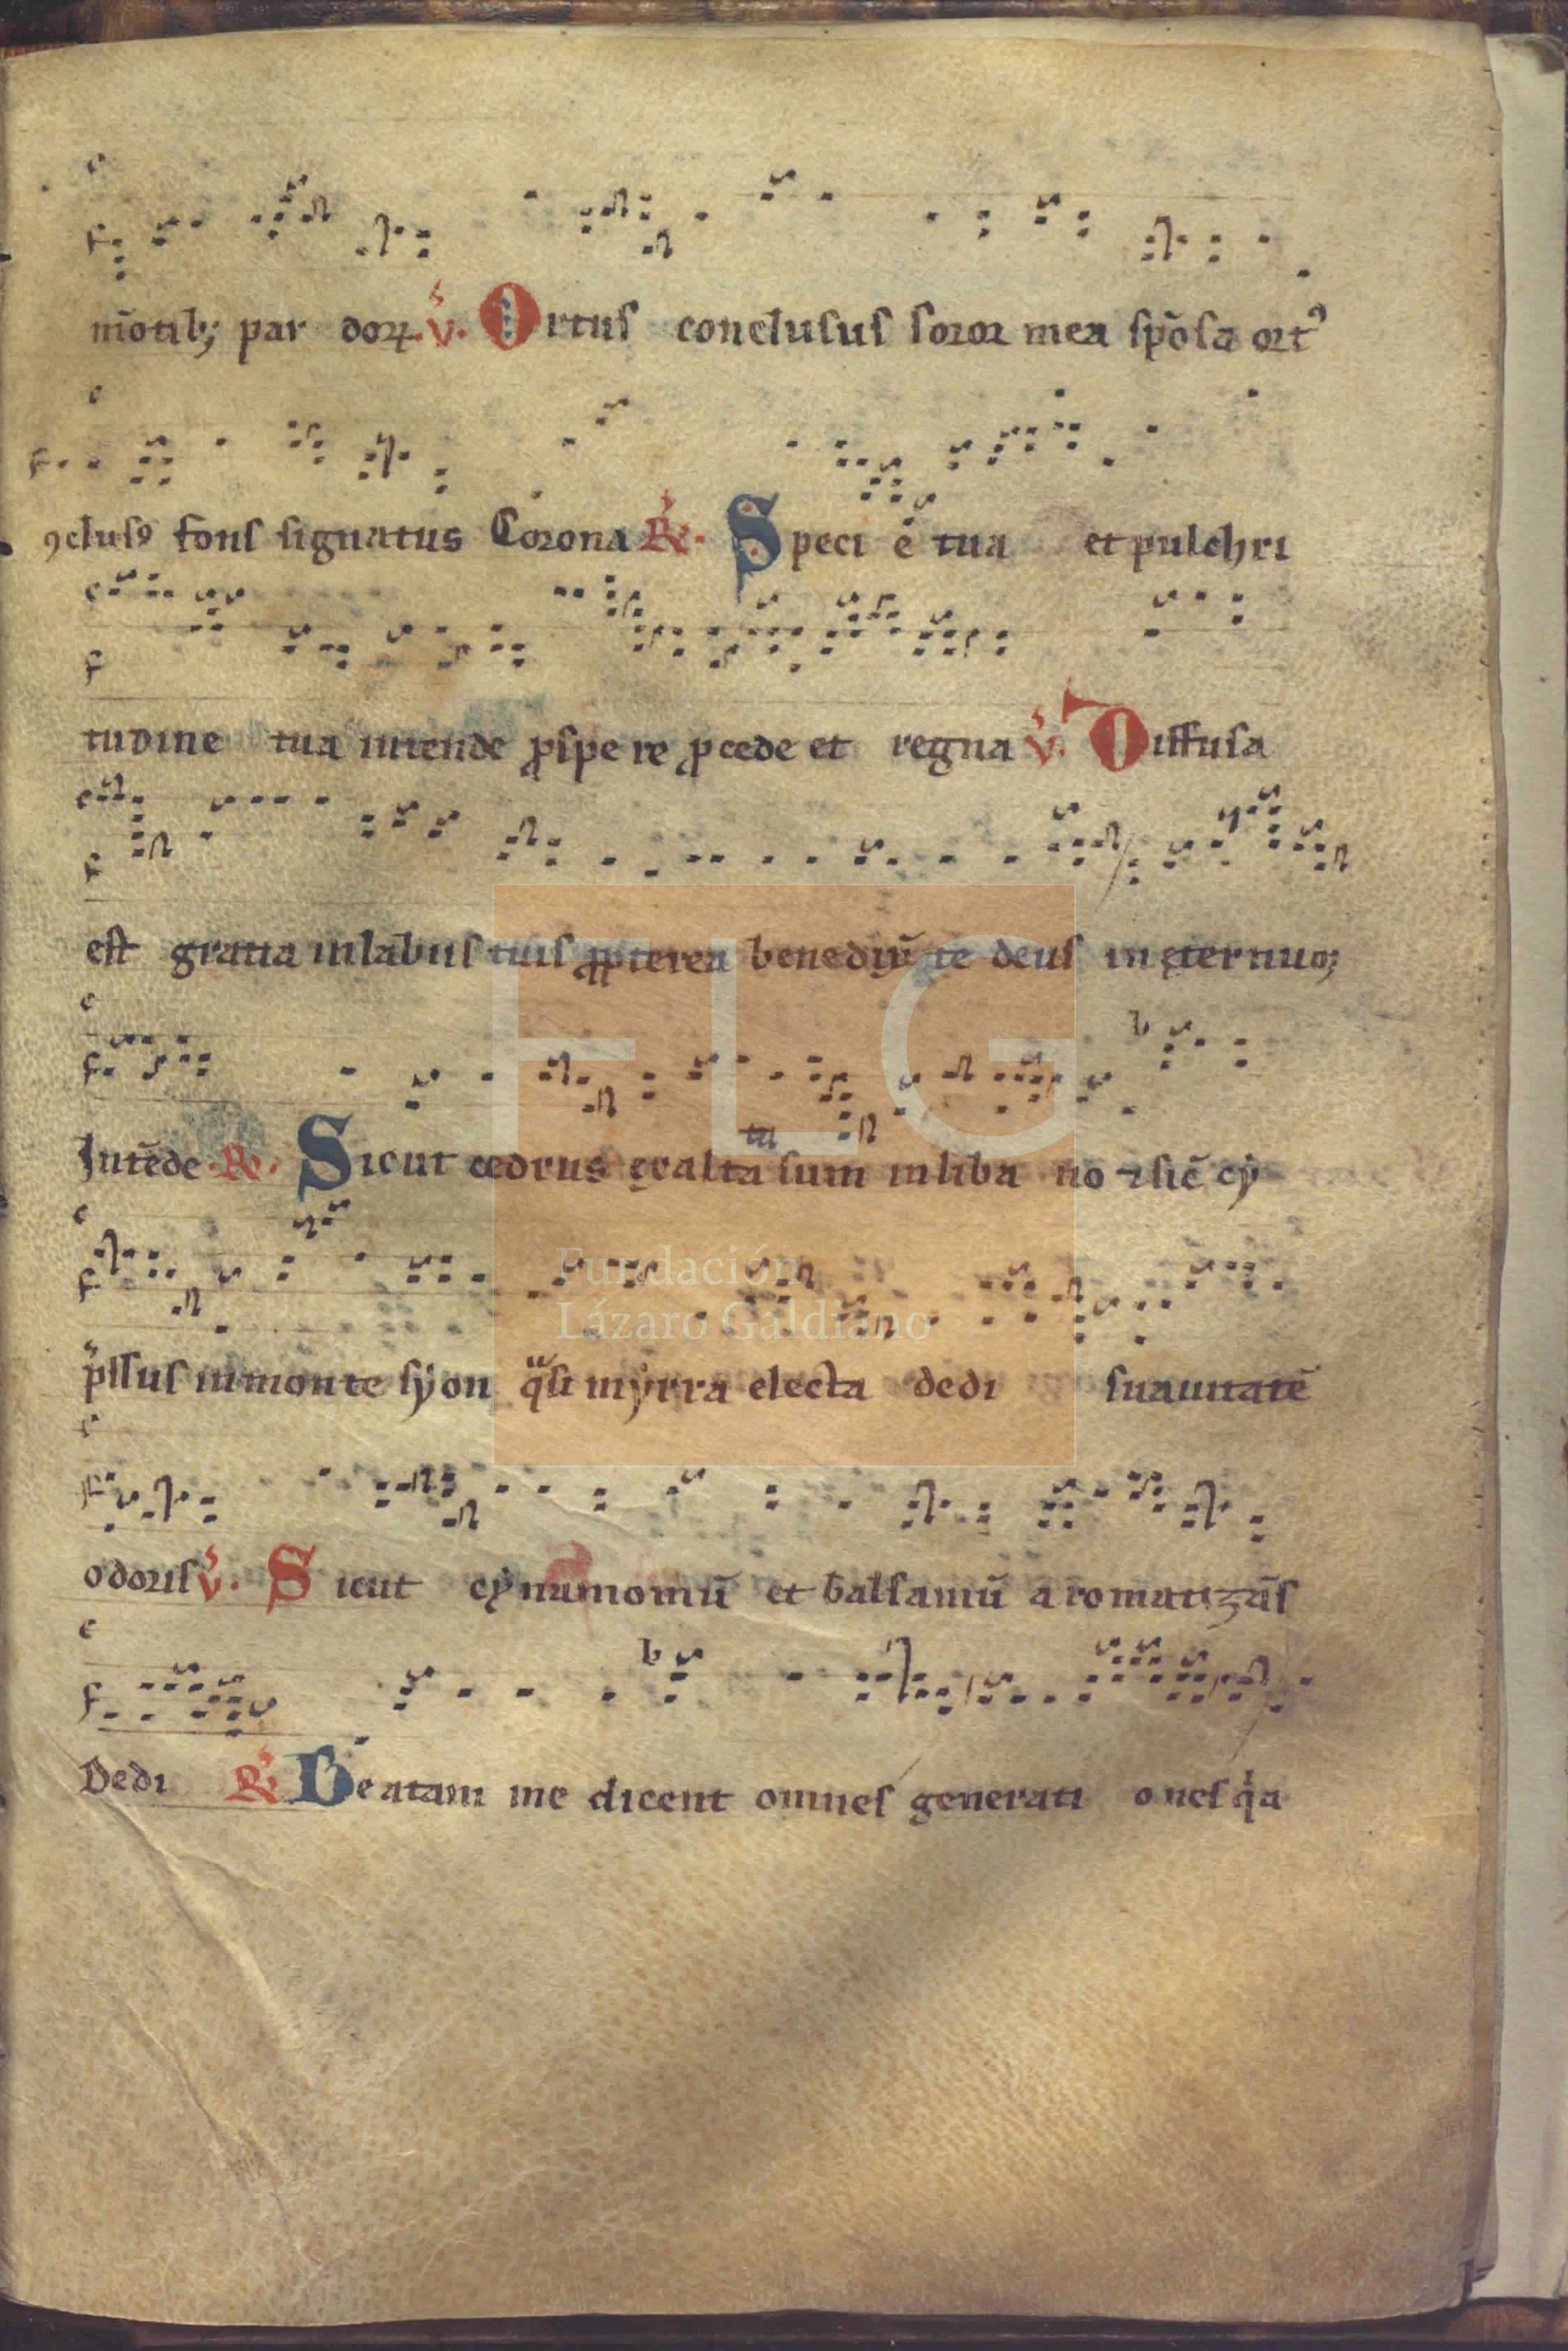 mōtib; par doꝝ. v̓. Ortus conclusus soror mea spōsa ortꝰ
ꝯclusꝰ fons signatus Corona R̓. Speci ē tua et pulchri
tudine tua intende ꝓspe re ꝓcede et regna v̓. Diffusa
est gratia inlabiis tuis ꝓpterea te deus in ęternuꝫ
Intēde R̓. Sicut cedrus exalta ta sum inliba no ⁊ sic̄ cẏ
p̓ssus inmonte sẏon qͣsi mẏrra electa dedi suauitatē
odoris v̓. Sicut cẏnamomū et balsamū aromatizās
Dedi R̓. Beatam me dicent omnes generati ones qͥa
Fundación
Lázaro Galdiano
FLG